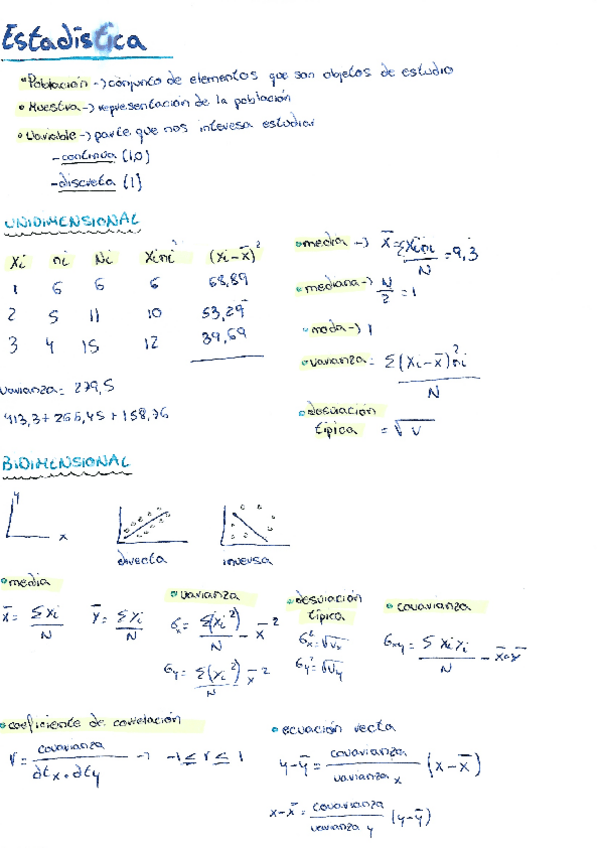 Estadística
• Población -> conjunto de elementos que son objetos de estudio
• Muestra -> representación de la población
• Variable -> parte que nos interesa estudiar
- continua (1,0)
- discreta (1)
UNIDIMENSIONAL
xi ni Ni xini (xi-x̄)²
1 6 6 6 68,89
2 5 11 10 53,29
3 4 15 12 39,69
varianza = 279,5
413,3 + 266,45 + 158,76
• media -> x̄ = Σxini / N = 9,3
• mediana -> N/2 = 1
• moda -> 1
• varianza = Σ(xi-x̄)²ni / N
• desviación típica = √v
BIDIMENSIONAL
y
x
directa
inversa
• media
x̄ = Σxi / N ȳ = Σyi / N
• varianza
σx = Σ(xi²) / N - x̄²
σy = Σ(xi²) / N - x̄²
• desviación típica
σx² = √vx
σy² = √vy
• covarianza
σxy = Σxiyi / N - x̄·ȳ
• coeficiente de correlación
r = covarianza / dtx · dty -> -1 ≤ r ≤ 1
• ecuación recta
y-ȳ = covarianza / varianza x (x-x̄)
x-x̄ = covarianza / varianza y (y-ȳ)